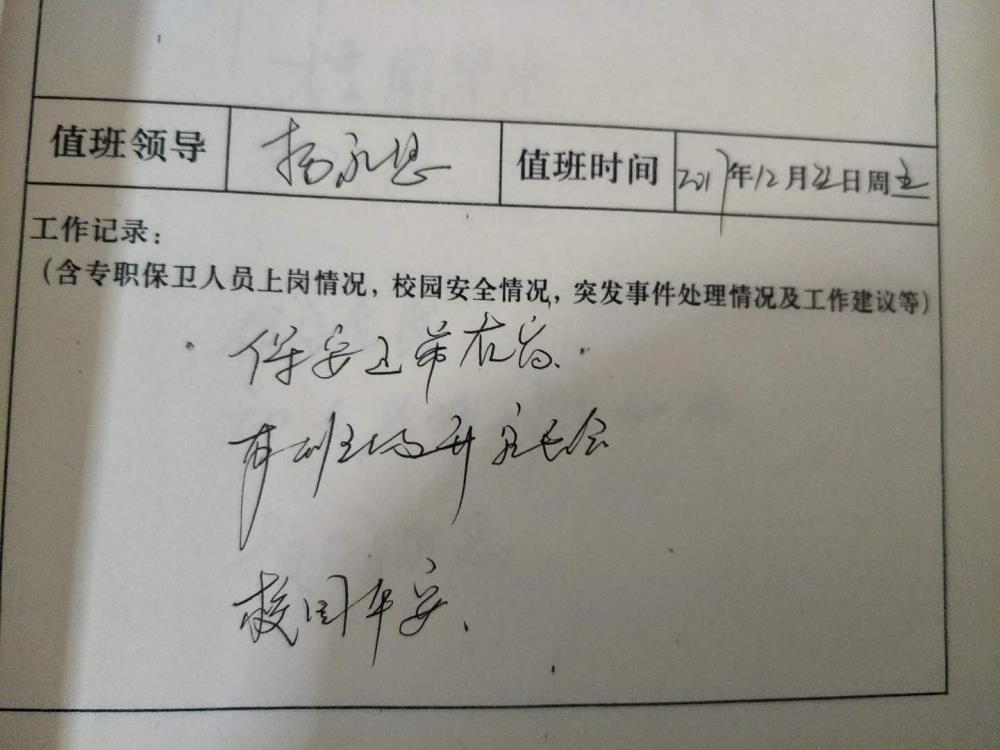 值班领导 杨永恩 值班时间 2017年12月22日周五
工作记录：
（含专职保卫人员上岗情况，校园安全情况，突发事件处理情况及工作建议等）
保安正常在岗、
有班主任开家长会
校园平安、